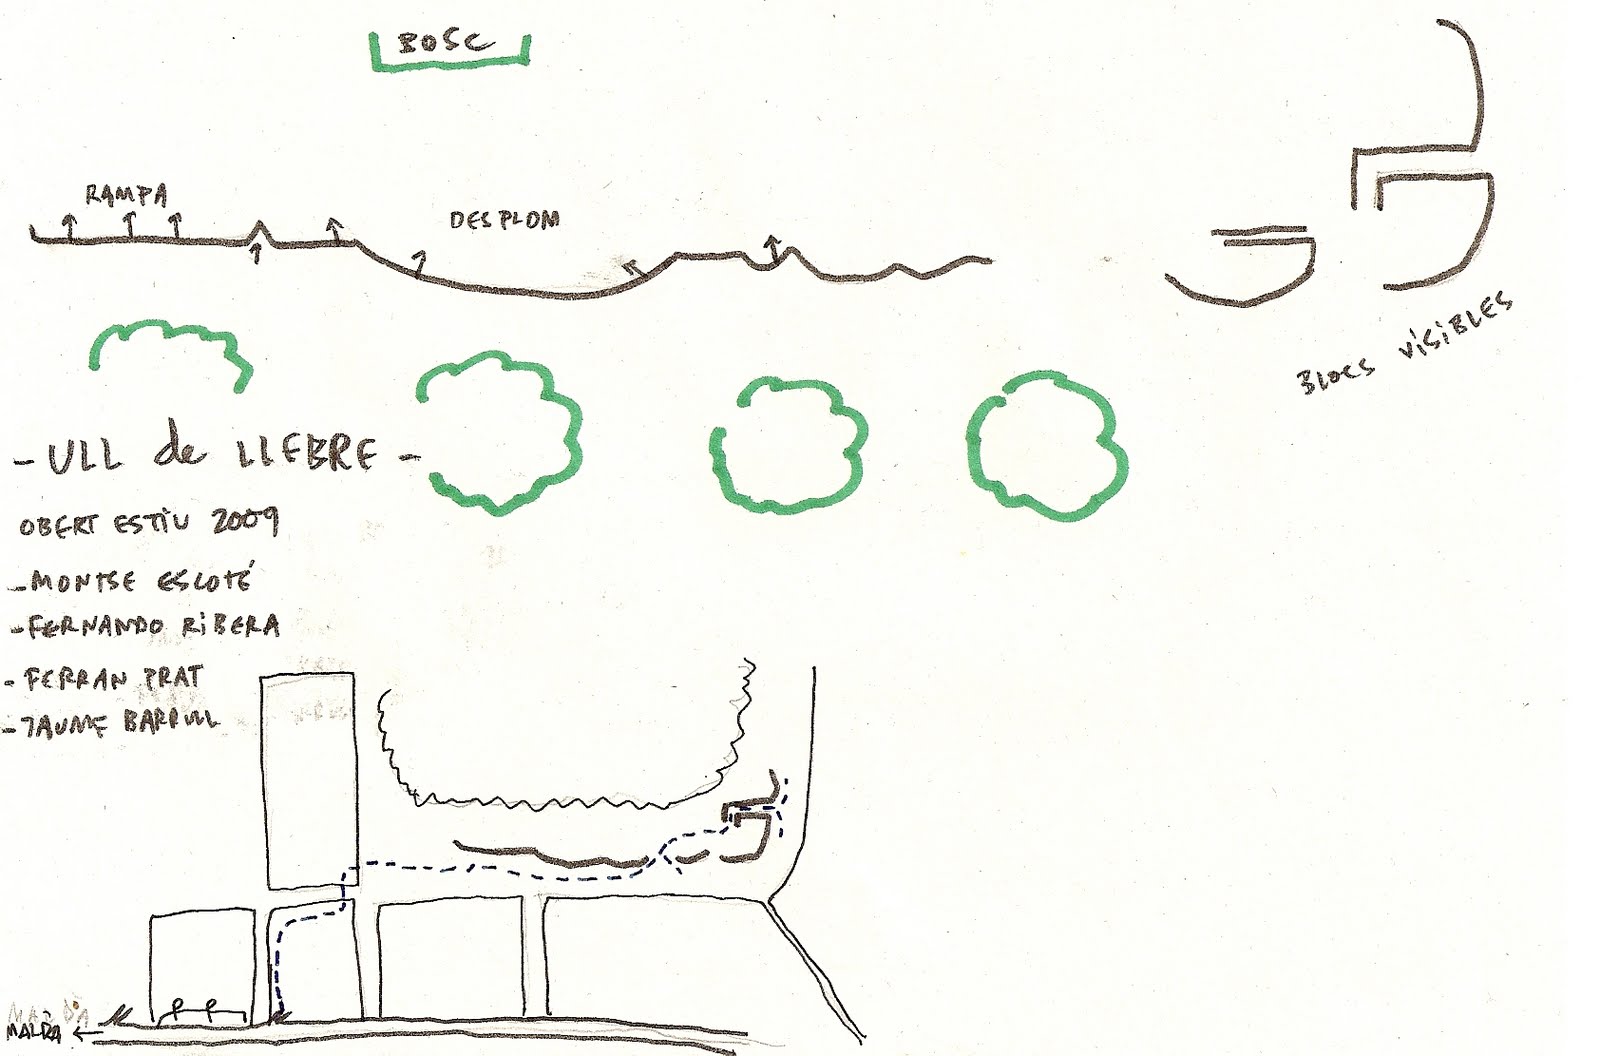 BOSC
RAMPA
DESPLOM
BLOCS VISIBLES
- ULL de LLEBRE -
OBERT ESTIU 2009
- MONTSE ESCOTÉ
- FERNANDO RIBERA
- FERRAN PRAT
- JAUME BARRULL
MALDÀ
MALDÀ